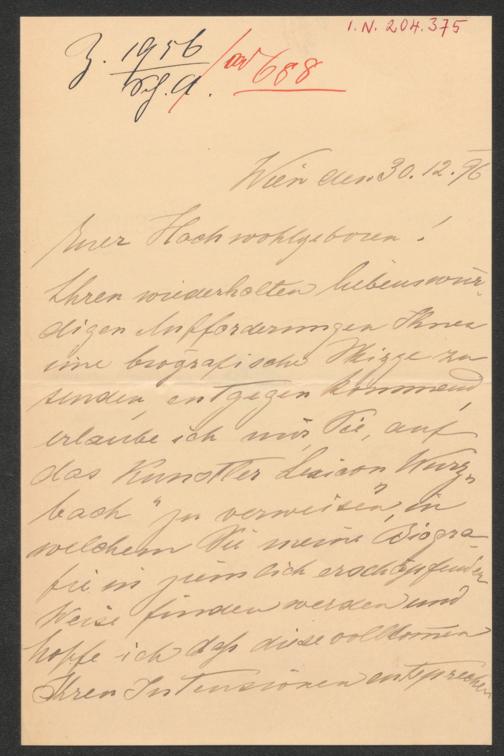 I.N. 204.375
Z. 1956 / ad 688
Wien den 30.12.96
Euer Hochwohlgeboren!
Ihren wiederholten liebenswür-
digen Aufforderungen Ihnen
eine biografische Skizze zu
senden, entgegen kommend,
erlaube ich mir, Sie, auf
das Künstler Lexicon „Wurz-
bach" zu verweisen, in
welchem Sie meine Biogra-
fie in ziemlich erschöpfender
Weise finden werden und
hoffe ich daß diese vollkomen
Ihren Intensionen entsprechen